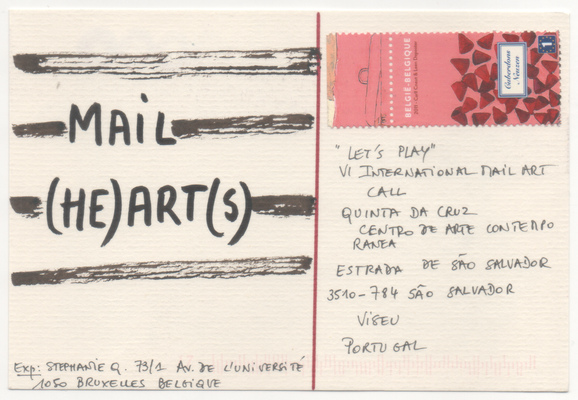 MAiL
(HE)ART(S)
Exp: STEPHANIE Q. 73/1 AV. DE L'UNIVERSITÉ
1050 BRUXELLES BELGIQUE
BELGIË-BELGIQUE
Cuberdons
Neuzen
1
"LET'S PLAY"
VI INTERNATIONAL MAIL ART
CALL
QUINTA DA CRUZ
CENTRO DE ARTE CONTEMPO
RANEA
ESTRADA DE SÃO SALVADOR
3510-784 SÃO SALVADOR
VISEU
PORTUGAL